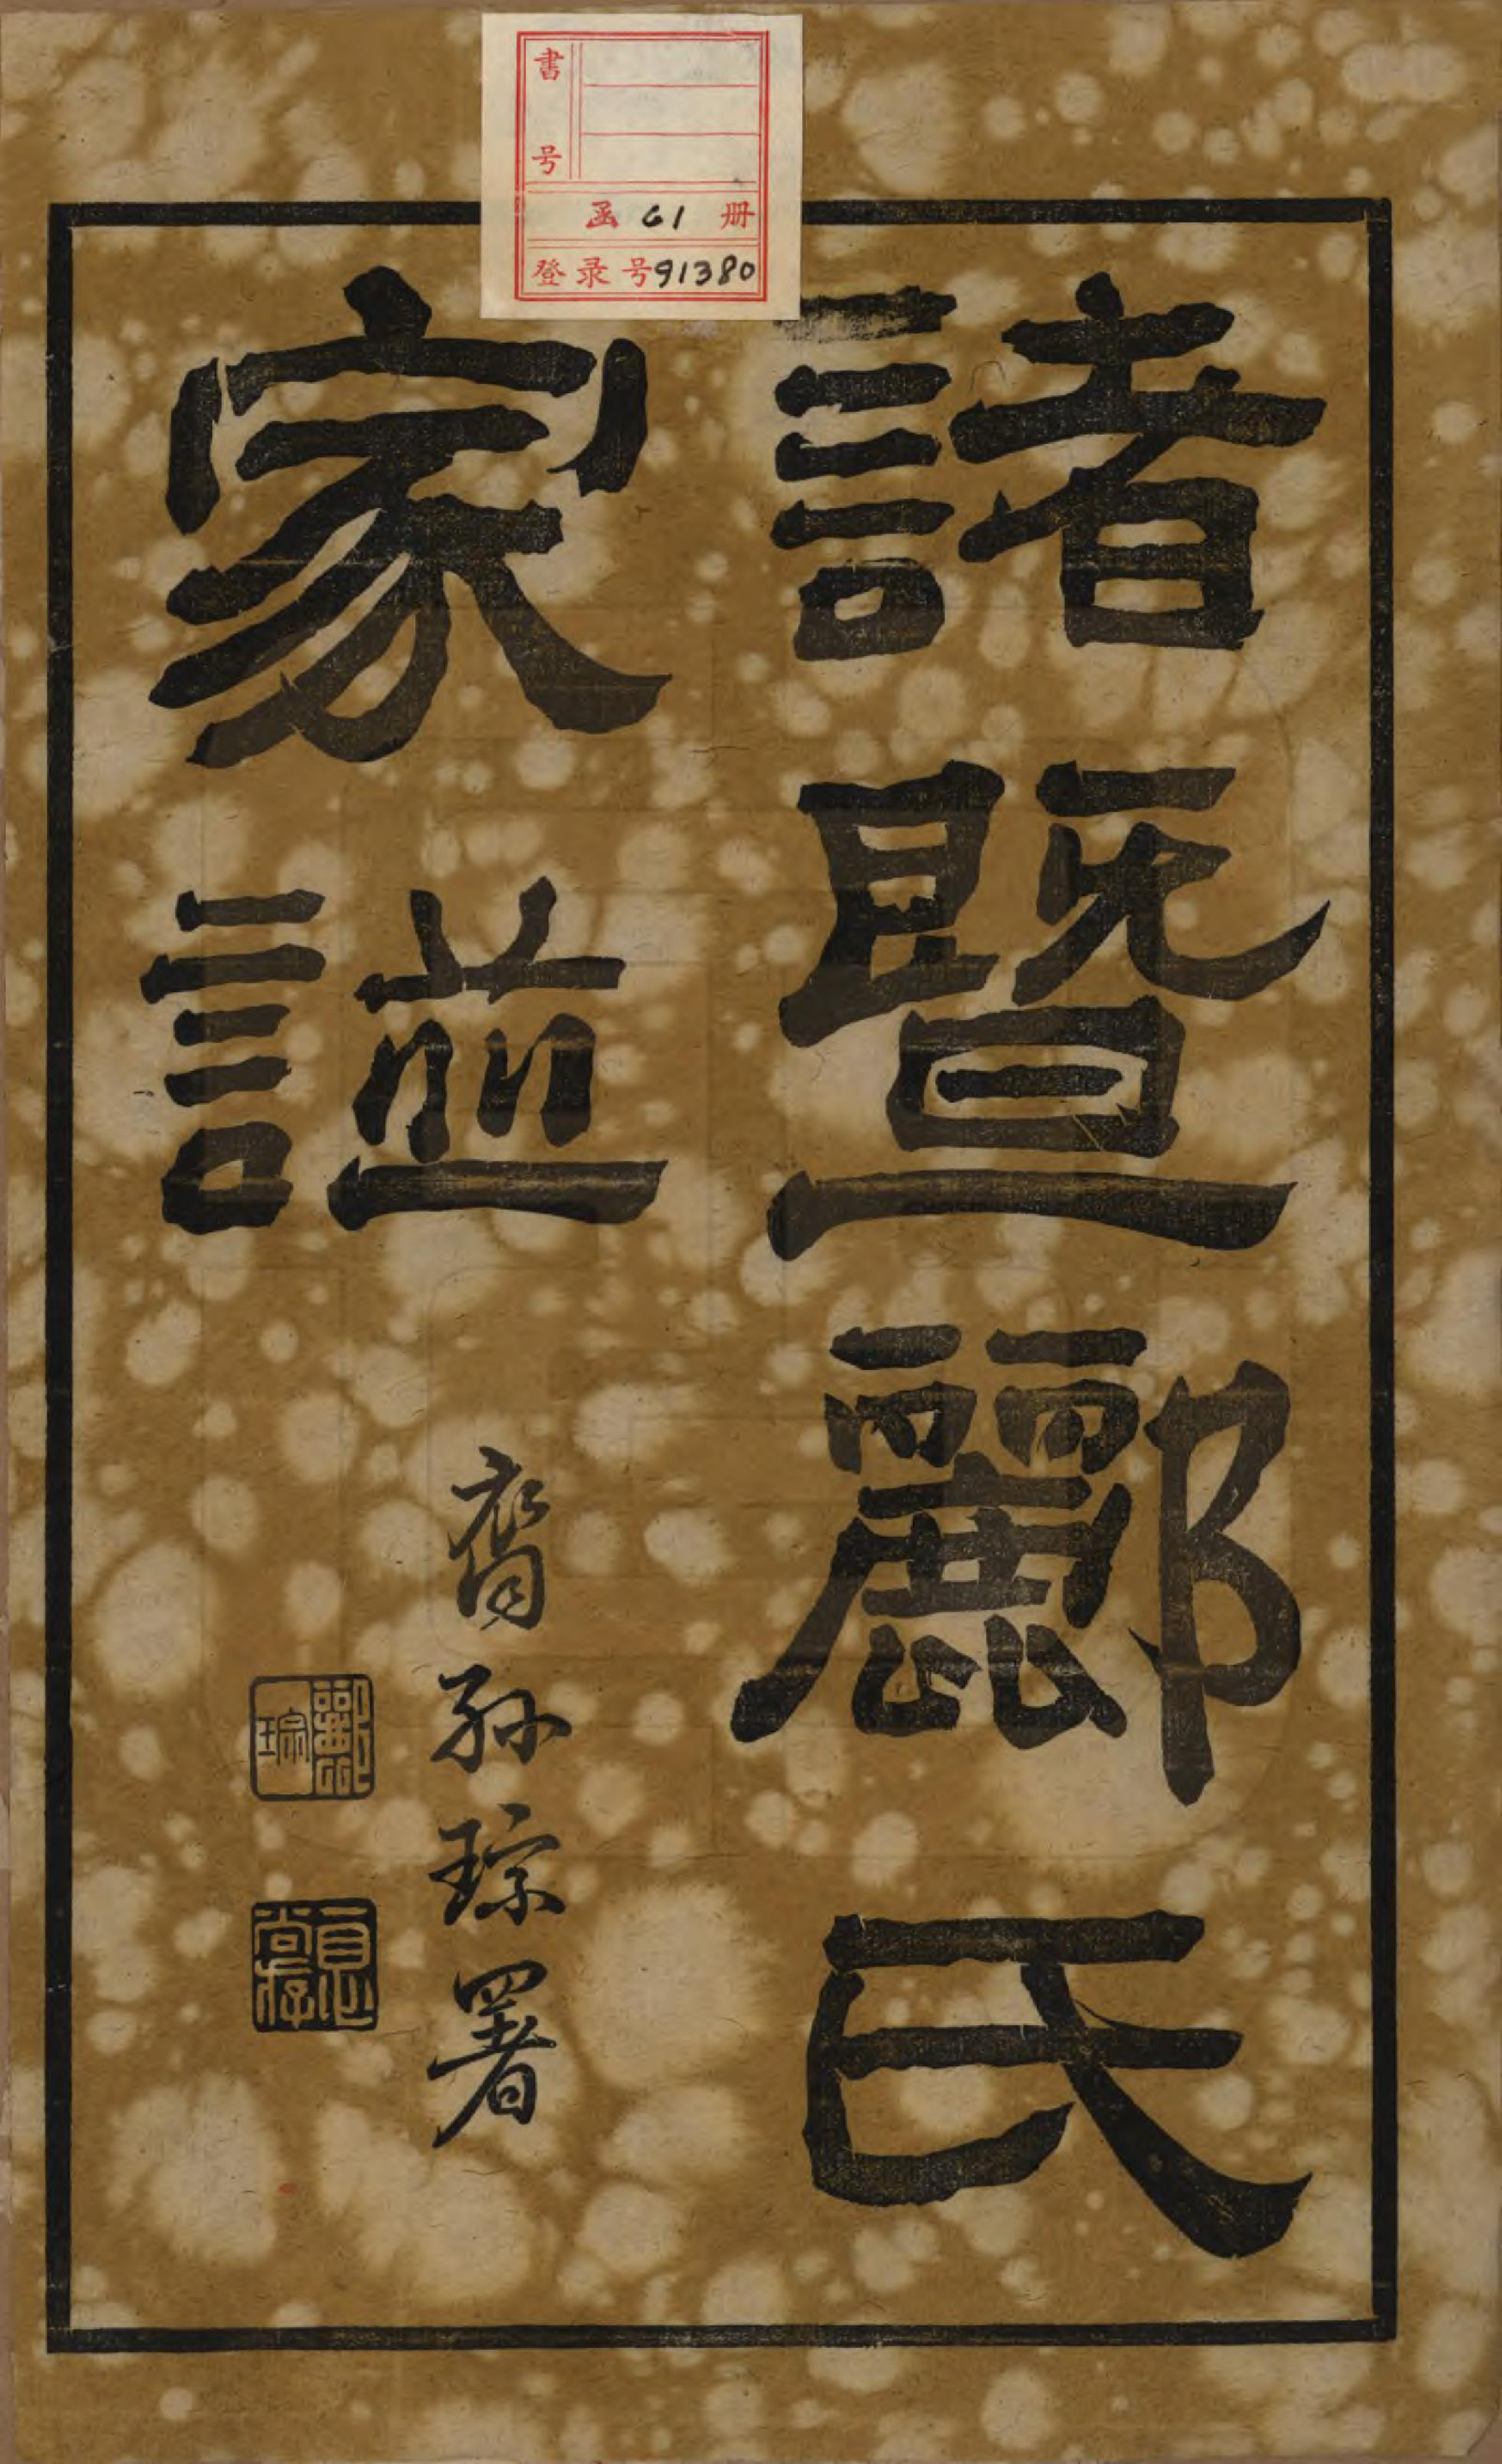 書号
函 61 册
登录号91380
諸暨酈氏
家諩
裔孫琮署
酈琮
一息尚存